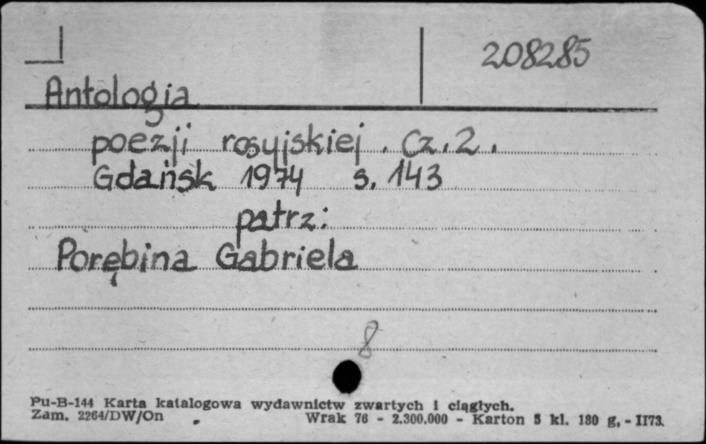 208285
Antologia
poezji rosyjskiej. Cz. 2.
Gdańsk 1974 s. 143
patrz:
Porębina Gabriela
8
Pu-B-144 Karta katalogowa wydawnictw zwartych i ciągłych.
Zam. 2264/DW/On Wrak 76 - 2.300.000 - Karton 5 kl. 180 g, - II73.